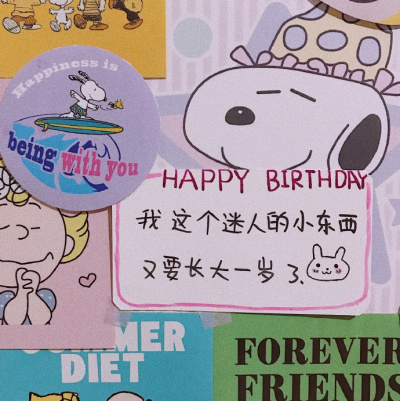 Happiness is
being with you
HAPPY BIRTHDAY
我这个迷人的小东西
又要长大一岁了
DIET
FOREVER
FRIENDS